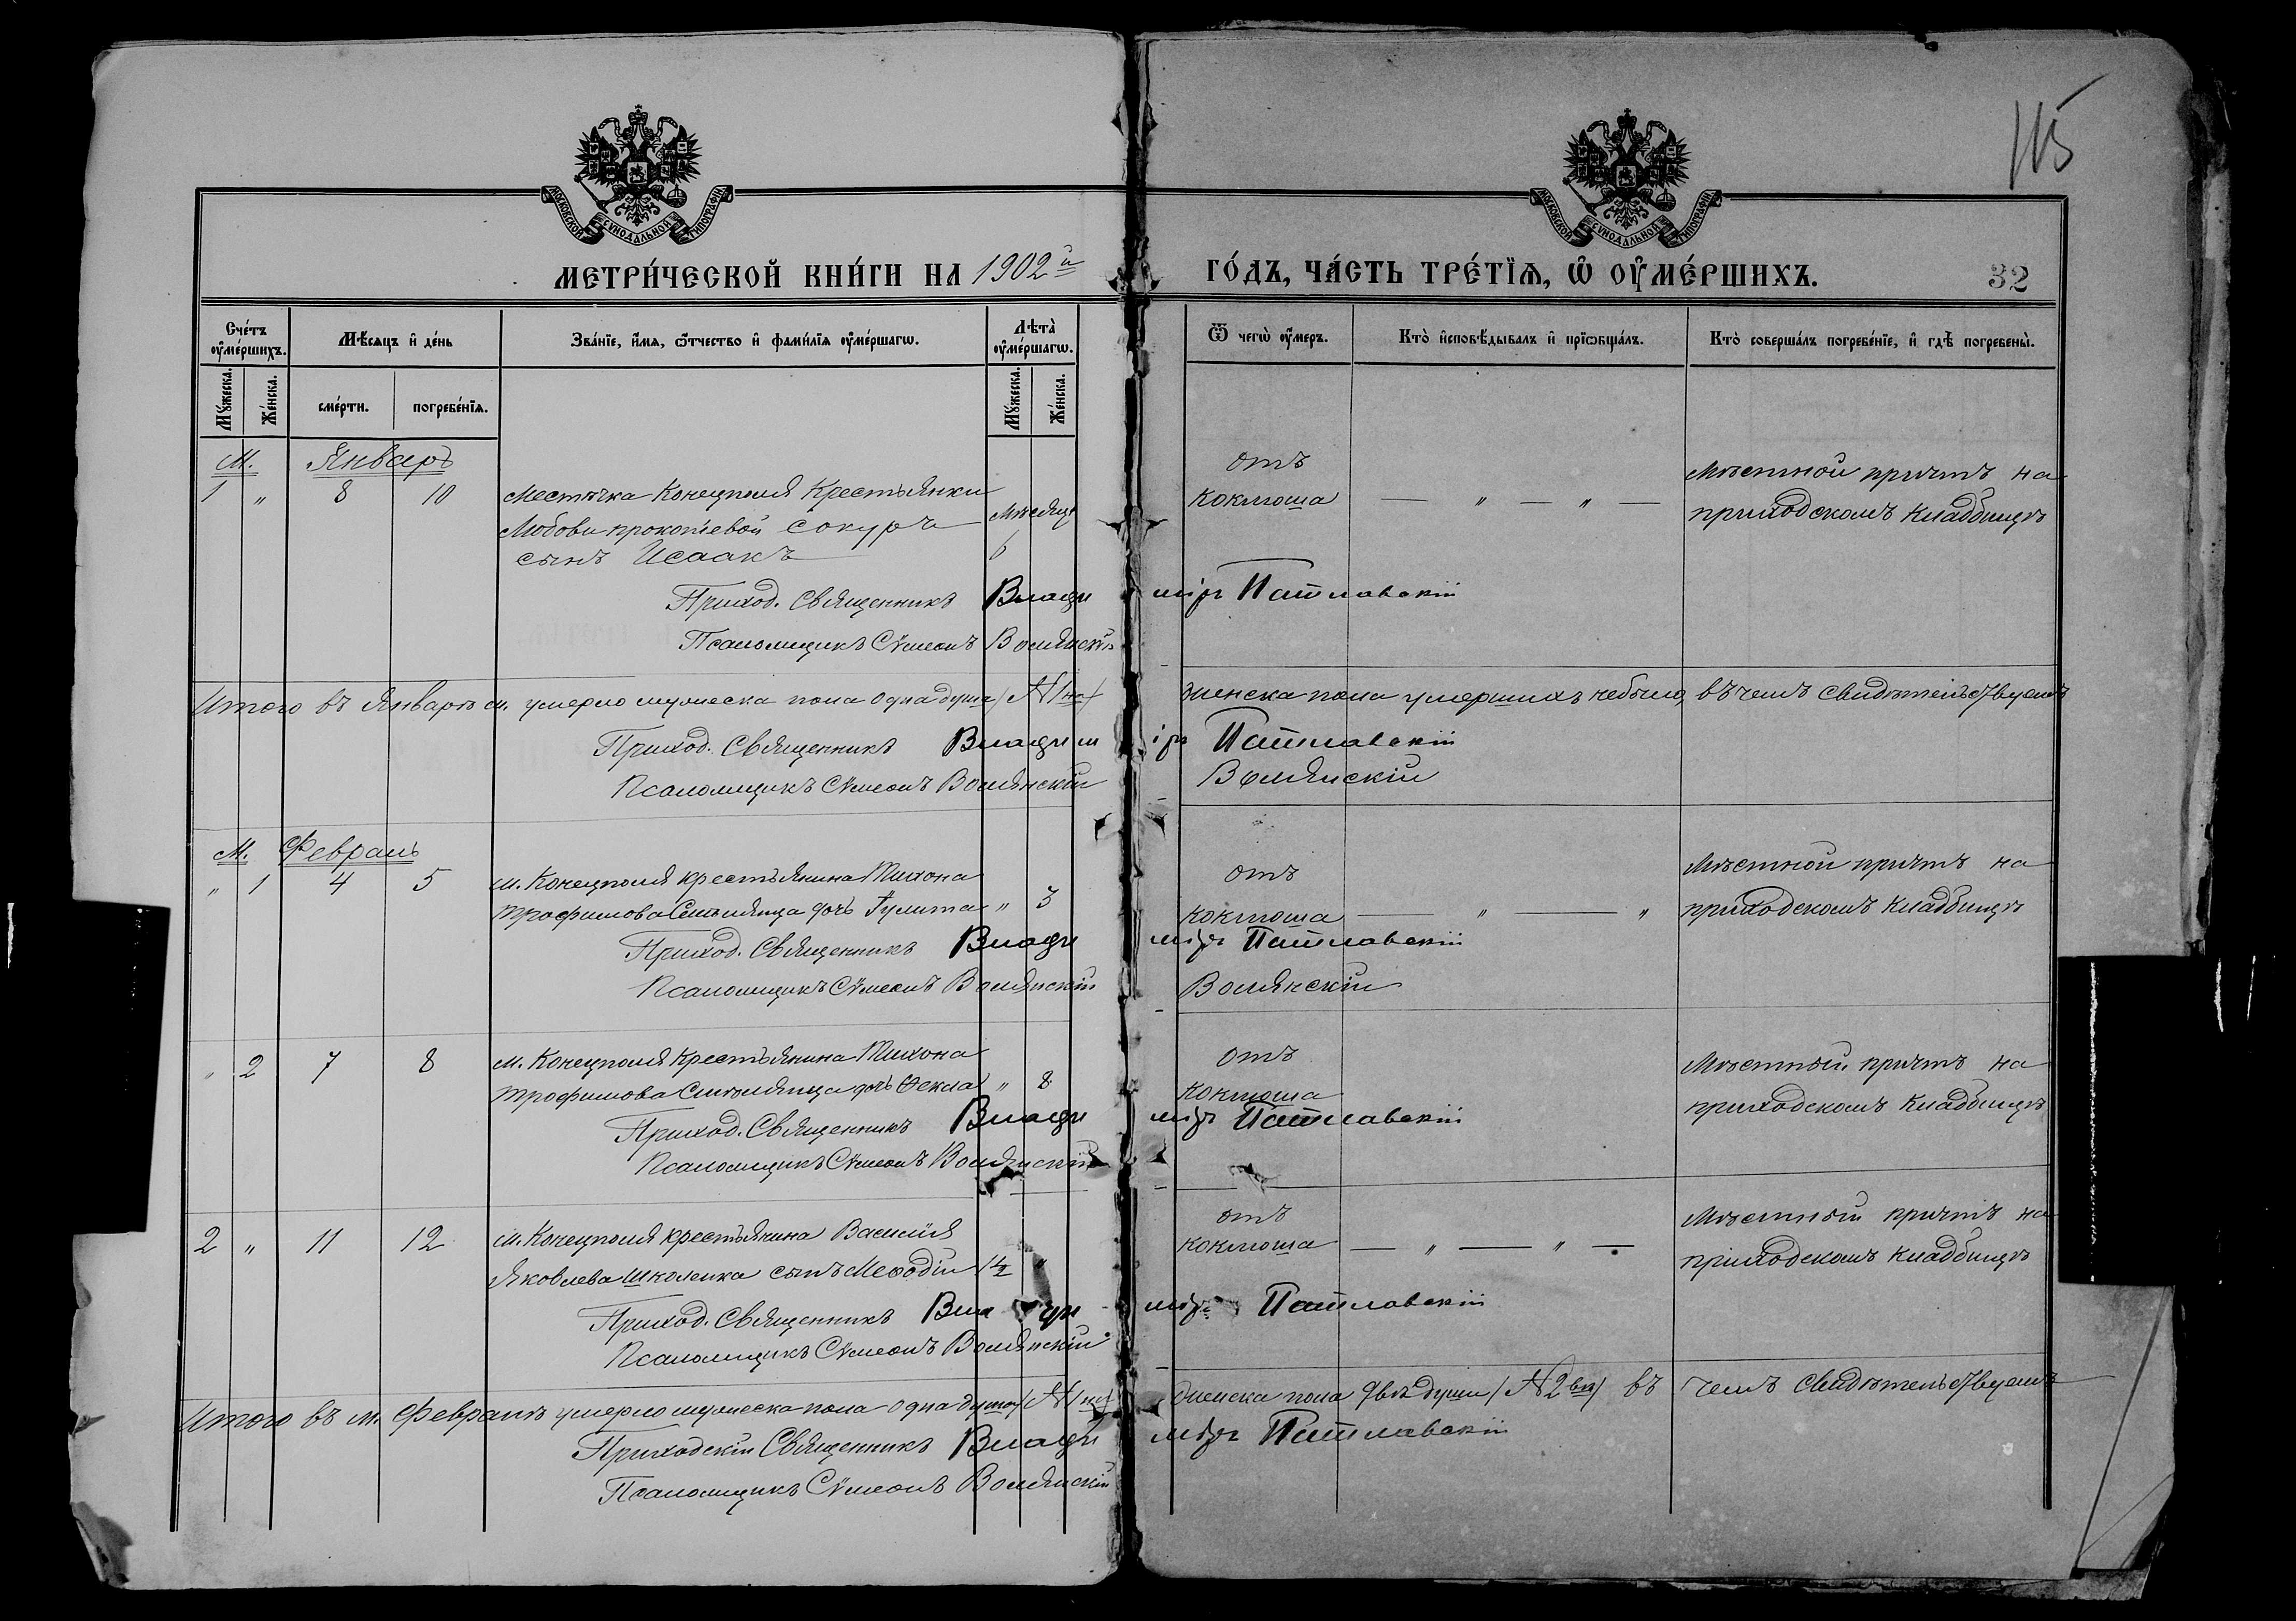 115
МОСКОВСКОЙ СѴНОДАЛЬНОЙ ТИПОГРАФІИ
МОСКОВСКОЙ СѴНОДАЛЬНОЙ ТИПОГРАФІИ
МЕТРИ́ЧЕСКОЙ КНИ́ГИ НА 1902й
ГО́ДЪ, ЧА́СТЬ ТРЕ́ТІѦ, Ѡ ОУМЕ́РШИХЪ.
32
Сче́тъ оуме́ршихъ.
Мѣ́сяцъ и де́нь
Зва́нїе, и́мѧ, ѻ҆́тчество и фами́лїѧ оуме́ршагѡ.
Лѣта̀ оуме́ршагѡ.
Ѿ чегѡ̀ оу́меръ.
Кто̀ исповѣ́дывалъ и прїѡбща́лъ.
Кто̀ соверша́лъ погребе́нїе, и гдѣ̀ погребены̀.
Мꙋ́жеска.
Же́нска.
сме́рти.
погребе́нїѧ.
Мꙋ́жеска.
Же́нска.
М. Январь
1 " 8 10 Местѣчка Конецполя Крестьянки
Любови прокопіевой Сокуръ
сынъ Исаакъ
Мѣсяцъ
6
отъ
коклюша — " — " —
Мѣстной причтъ на
приходскомъ кладбищѣ
Приход. Священникъ Влади міръ Патлавскій
Псаломщикъ Сѵмеонъ Волянскій
Итого въ Январѣ м. умерло мужеска пола одна душа (№ 1на) женска пола умершихъ небыло, въ чемъ свидѣтельствуемъ
Приход. Священникъ Владим іръ Патлавскій
Псаломщикъ Сѵмеонъ Волянскій
Волянскій
М. Февраль
" 1 4 5 м. Конецполя крестьянина Тихона
Трофимова дочь Гулита " 3
отъ
коклюша — " — "
Мѣстной причтъ на
приходскомъ кладбищѣ
Приход. Священникъ Влади міръ Патлавскій
Псаломщикъ Сѵмеонъ Волянскій
Волянскій
" 2 7 8 м. Конецполя Крестьянина Тихона
Трофимова дочь Ѳекла " 8
отъ
коклюша
Мѣстный причтъ на
приходскомъ кладбищѣ
Приход. Священникъ Влади міръ Патлавскій
Псаломщикъ Сѵмеонъ Волянскій
2 " 11 12 м. Конецполя крестьянина Василія
Яковлева Школенка сынъ Меѳодій 1½ "
отъ
коклюша — " — " —
Мѣстный причтъ на
приходскомъ кладбищѣ
Приход. Священникъ Влади міръ Патлавскій
Псаломщикъ Сѵмеонъ Волянскій
Итого въ м. Февралѣ умерло мужеска пола одна душа (№ 1на) женска пола двѣ души (№ 2вѣ) въ чемъ свидѣтельствуемъ
Приходскій Священникъ Влади міръ Патлавскій
Псаломщикъ Сѵмеонъ Волянскій